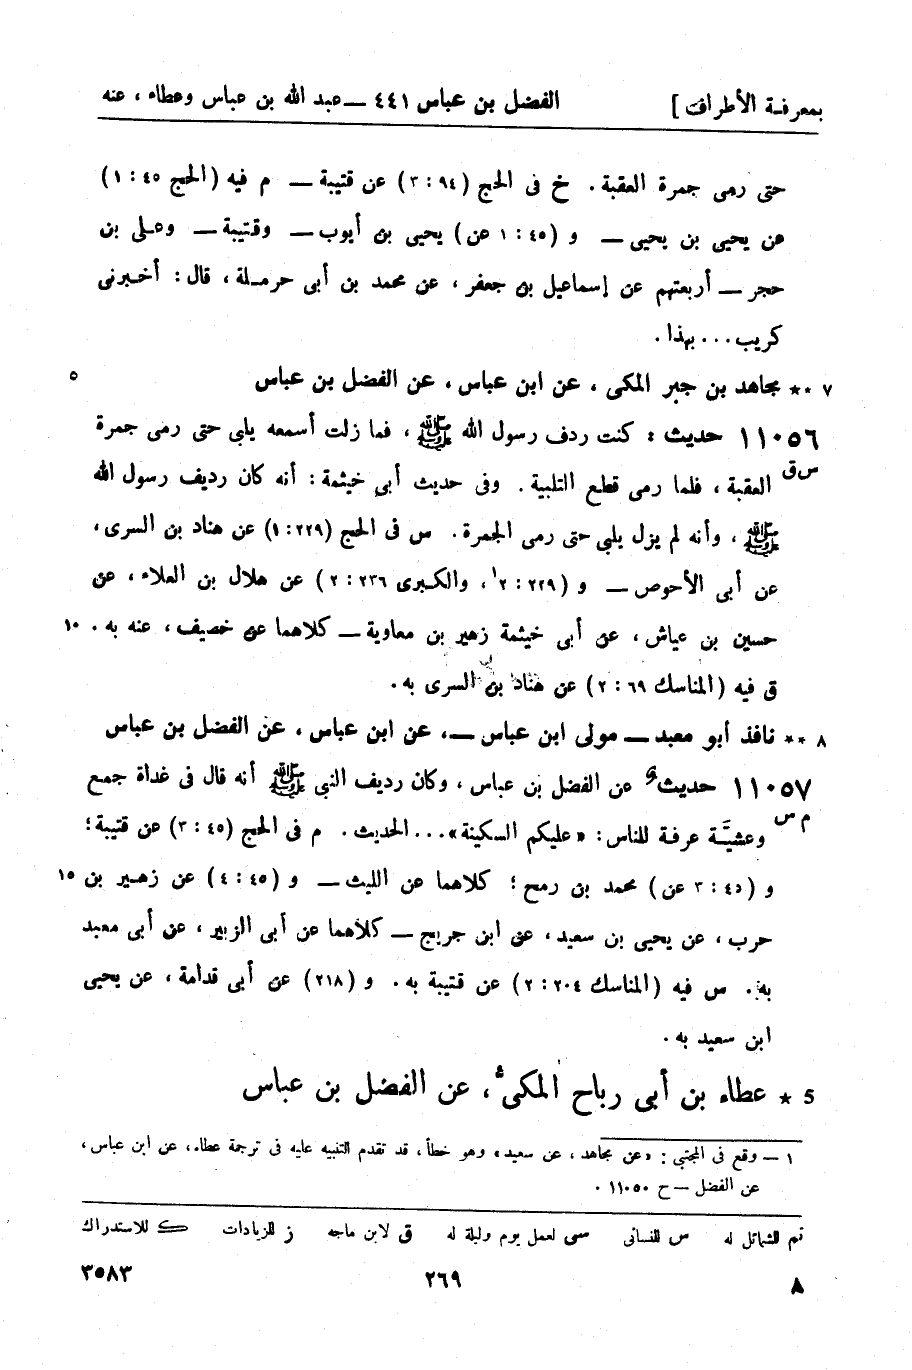 بمعرفة الأطراف] الفضل بن عباس ٤٤١ — عبد الله بن عباس وعطاء ، عنه
حتى رمى جمرة العقبة . خ فى الحج (٩٤ : ٣) عن قتيبة — م فيه (الحج ٤٥ : ١)
عن يحيى بن يحيى — و (٤٥ : ١ عن) يحيى بن أيوب — وقتيبة — وعلى بن
حجر — أربعتهم عن إسماعيل بن جعفر ، عن محمد بن أبى حرملة ، قال : أخبرنى
كريب . . . بهذا .
٧ ** مجاهد بن جبر المكى ، عن ابن عباس ، عن الفضل بن عباس ٥
١١٠٥٦ حديث : كنت ردف رسول الله ﷺ ، فما زلت أسمعه يلبى حتى رمى جمرة
س ق العقبة ، فلما رمى قطع التلبية . وفى حديث أبى خيثمة : أنه كان رديف رسول الله
ﷺ ، وأنه لم يزل يلبى حتى رمى الجمرة . س فى الحج (٢٢٩ : ١) عن هناد بن السرى ،
عن أبى الأحوص — و (٢٢٩ : ٢١ ، والكبرى ٢٣٦ : ٢) عن هلال بن العلاء ، عن
حسين بن عياش ، عن أبى خيثمة زهير بن معاوية — كلاهما عن خصيف ، عنه به . ١٠
ق فيه (المناسك ٦٩ : ٢) عن هناد بن السرى به .
٨ ** نافذ أبو معبد — مولى ابن عباس — ، عن ابن عباس ، عن الفضل بن عباس
١١٠٥٧ حديث عن الفضل بن عباس ، وكان رديف النبى ﷺ أنه قال فى غداة جمع
م س وعشيَّة عرفة للناس : «عليكم السكينة» . . . الحديث . م فى الحج (٤٥ : ٣) عن قتيبة ؛
و (٤٥ : ٣ عن) محمد بن رمح ؛ كلاهما عن الليث — و (٤٥ : ٤) عن زهير بن ١٥
حرب ، عن يحيى بن سعيد ، عن ابن جريج — كلاهما عن أبى الزبير ، عن أبى معبد
به . س فيه (المناسك ٢٠٤ : ٢) عن قتيبة به . و (٢١٨) عن أبى قدامة ، عن يحيى
ابن سعيد به .
5 * عطاء بن أبى رباح المكى ، عن الفضل بن عباس
١ — وقع فى المجتبى : «عن مجاهد ، عن سعيد» وهو خطأ ، قد تقدم التنبيه عليه فى ترجمة عطاء ، عن ابن عباس ،
عن الفضل — ح ١١٠٥٠ .
تم للشمائل له س للنسائى سى لعمل يوم وليلة له ق لابن ماجه ز للزيادات ك للاستدراك
٨ ٢٦٩ ٣٥٨٣